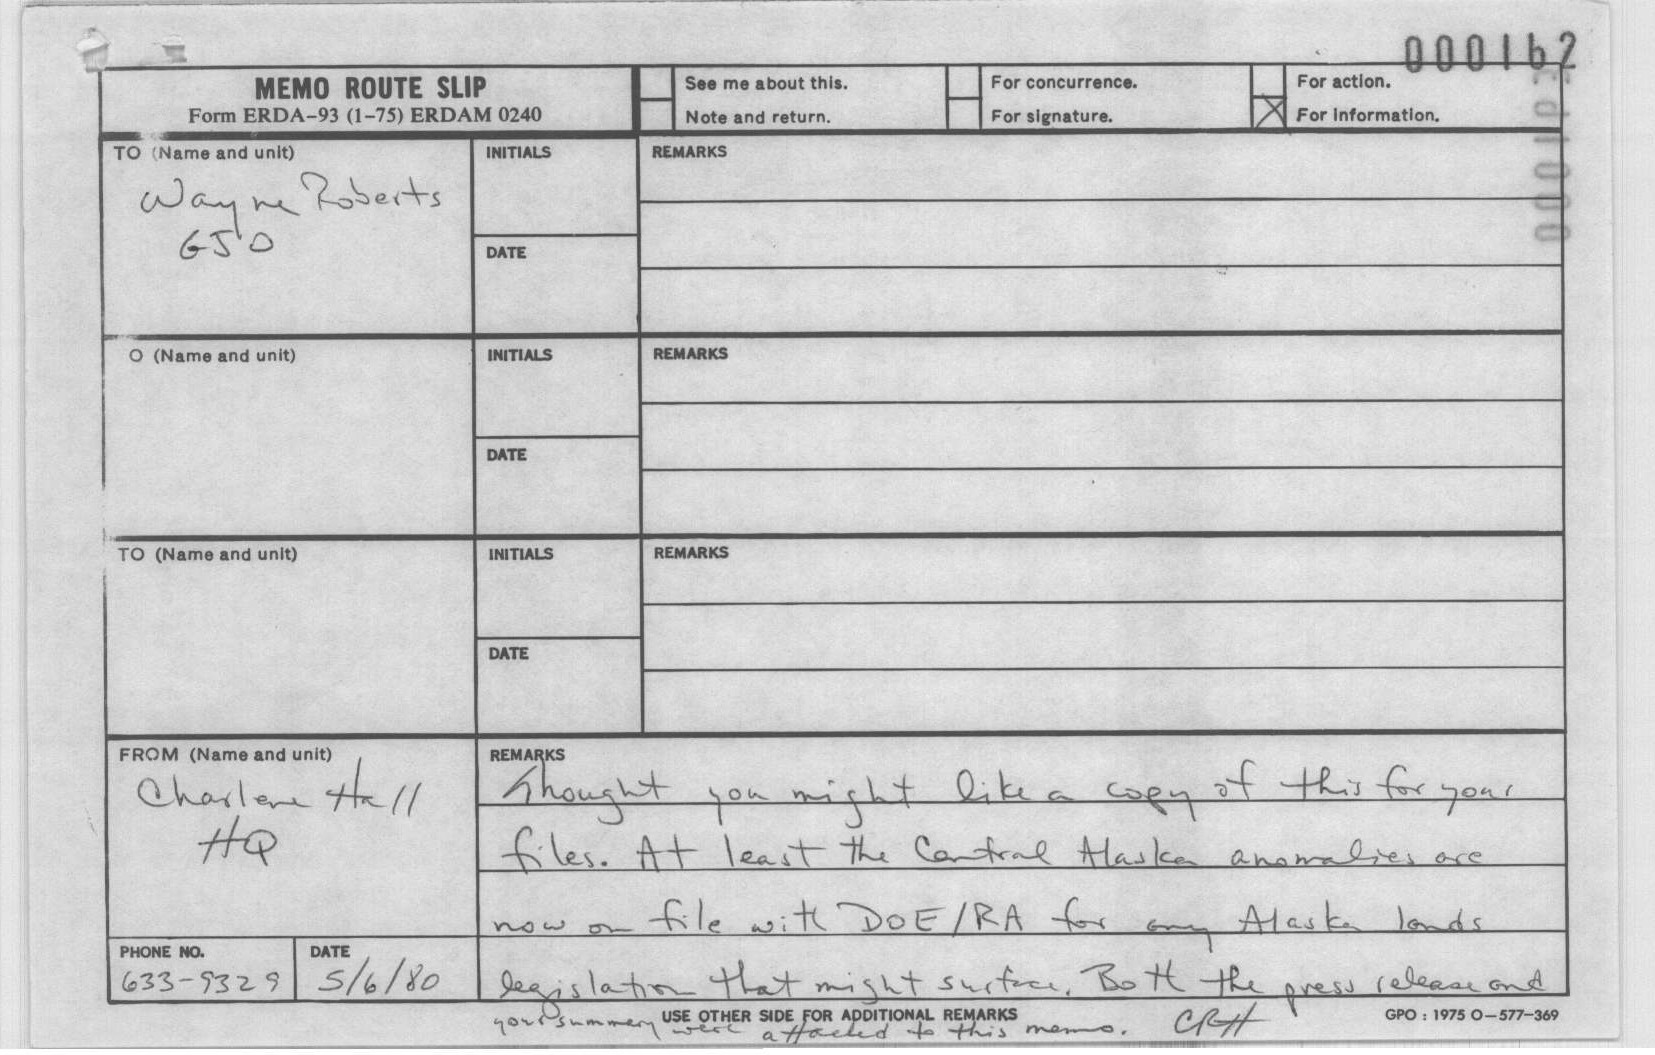 000162
MEMO ROUTE SLIP
Form ERDA-93 (1-75) ERDAM 0240
See me about this.
Note and return.
For concurrence.
For signature.
For action.
For information.
TO (Name and unit)
Wayne Roberts
GJO
INITIALS
DATE
REMARKS
O (Name and unit)
INITIALS
DATE
REMARKS
TO (Name and unit)
INITIALS
DATE
REMARKS
FROM (Name and unit)
Charlene Hall
HQ
PHONE NO.
633-9329
DATE
5/6/80
REMARKS
Thought you might like a copy of this for your
files. At least the Central Alaska anomalies are
now on file with DOE/RA for any Alaska lands
legislation that might surface. Both the press release and
your summery were attached to this memo. CRH
USE OTHER SIDE FOR ADDITIONAL REMARKS
GPO : 1975 O-577-369